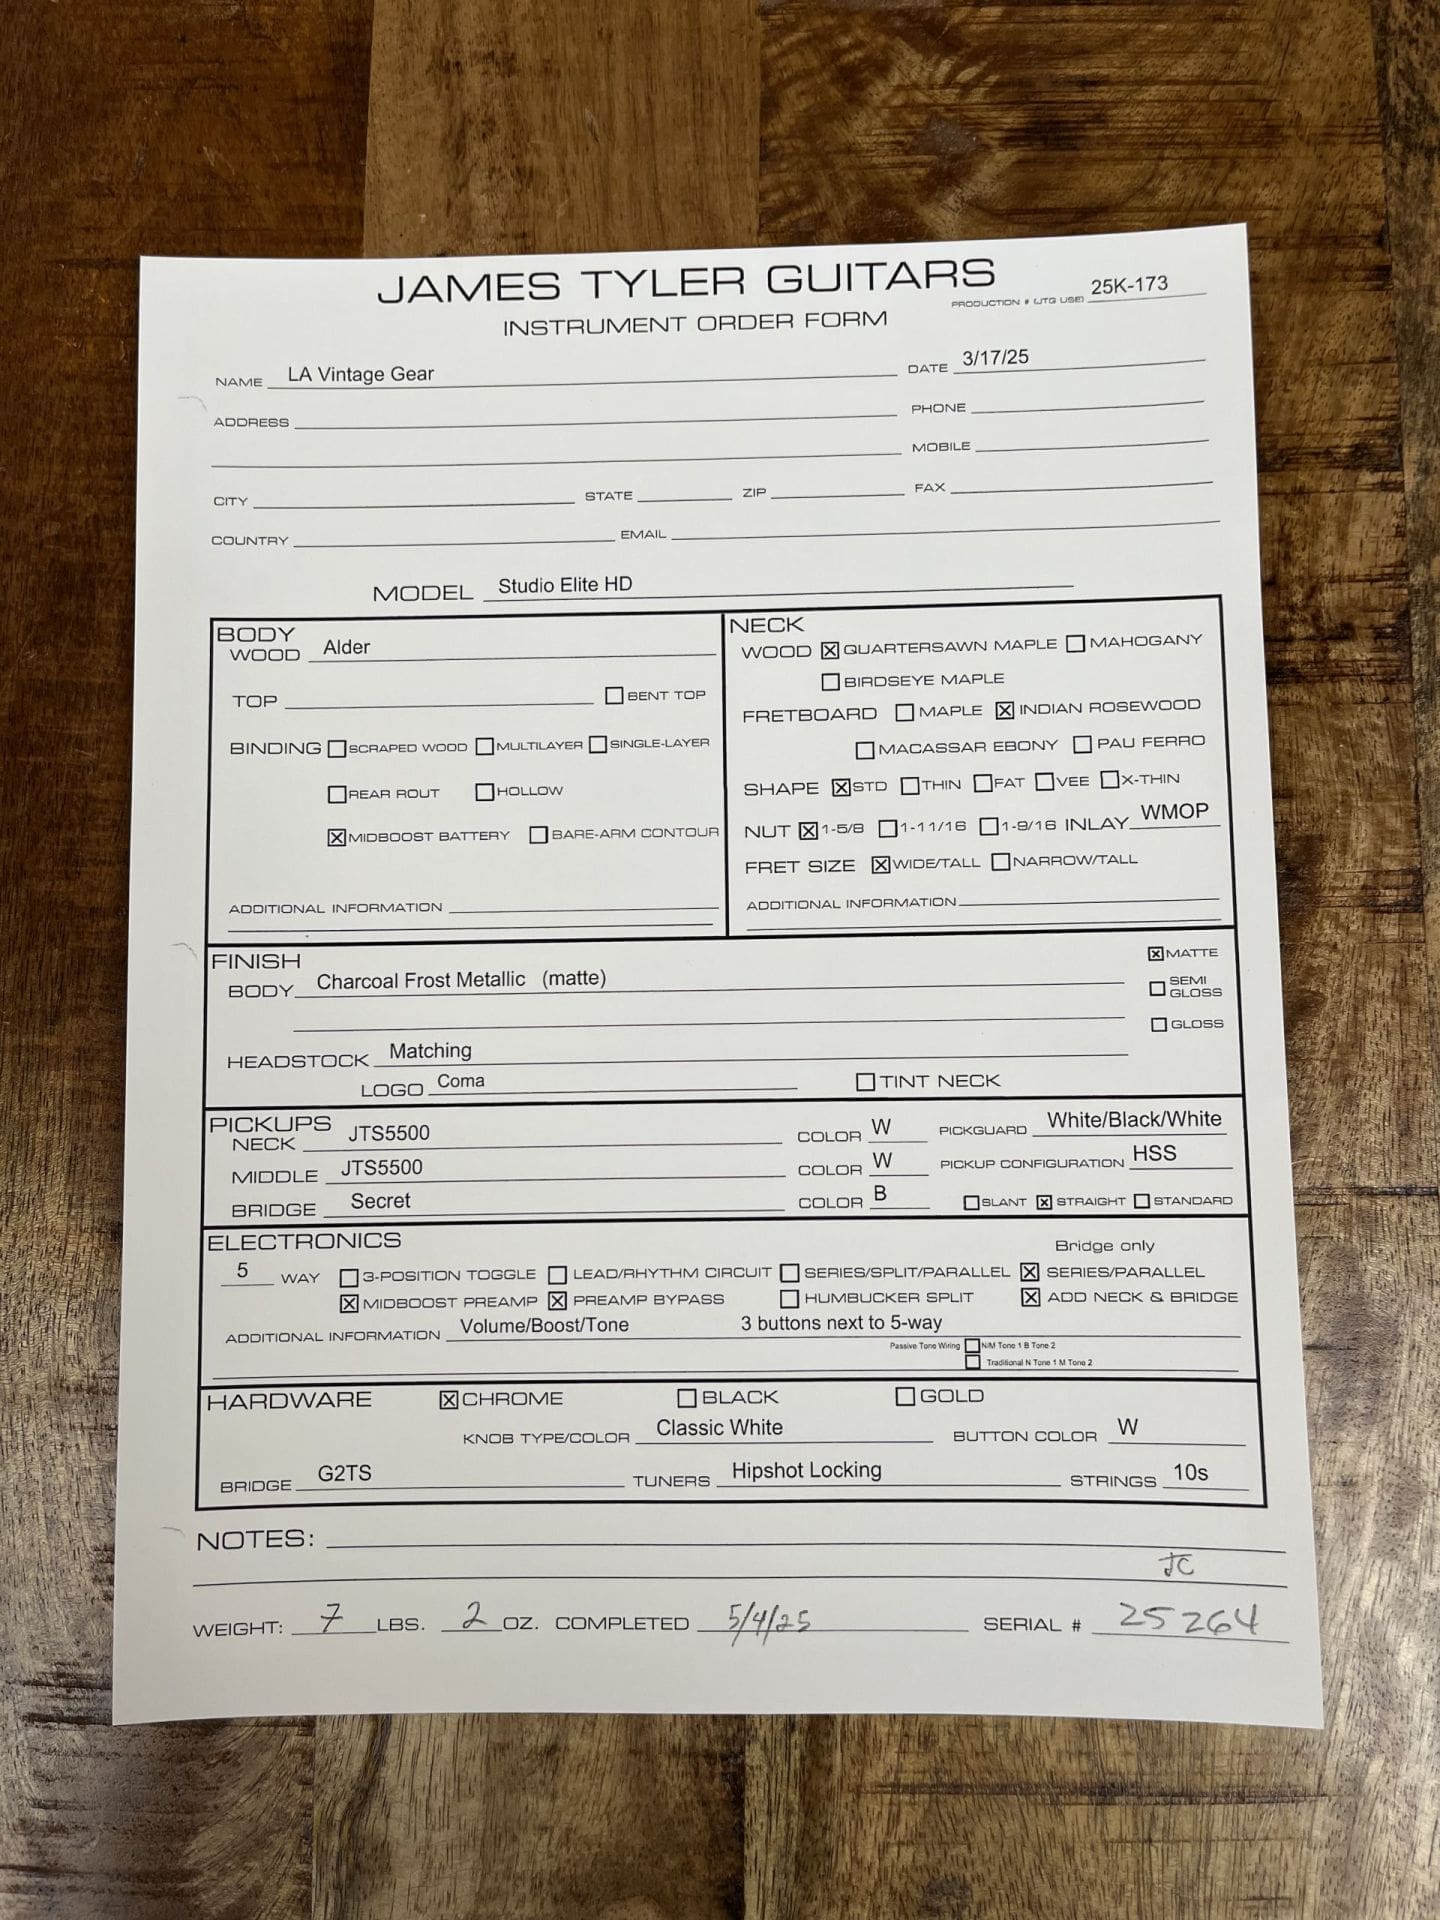 JAMES TYLER GUITARS
PRODUCTION # (JTG USE) 25K-173
INSTRUMENT ORDER FORM
NAME LA Vintage Gear DATE 3/17/25
ADDRESS PHONE
MOBILE
CITY STATE ZIP FAX
COUNTRY EMAIL
MODEL Studio Elite HD
BODY
WOOD Alder
TOP ☐ BENT TOP
BINDING ☐ SCRAPED WOOD ☐ MULTILAYER ☐ SINGLE-LAYER
☐ REAR ROUT ☐ HOLLOW
☒ MIDBOOST BATTERY ☐ BARE-ARM CONTOUR
ADDITIONAL INFORMATION
NECK
WOOD ☒ QUARTERSAWN MAPLE ☐ MAHOGANY
☐ BIRDSEYE MAPLE
FRETBOARD ☐ MAPLE ☒ INDIAN ROSEWOOD
☐ MACASSAR EBONY ☐ PAU FERRO
SHAPE ☒ STD ☐ THIN ☐ FAT ☐ VEE ☐ X-THIN
NUT ☒ 1-5/8 ☐ 1-11/16 ☐ 1-9/16 INLAY WMOP
FRET SIZE ☒ WIDE/TALL ☐ NARROW/TALL
ADDITIONAL INFORMATION
FINISH
☒ MATTE
BODY Charcoal Frost Metallic (matte)
☐ SEMI GLOSS
☐ GLOSS
HEADSTOCK Matching
LOGO Coma ☐ TINT NECK
PICKUPS
NECK JTS5500 COLOR W PICKGUARD White/Black/White
MIDDLE JTS5500 COLOR W PICKUP CONFIGURATION HSS
BRIDGE Secret COLOR B ☐ SLANT ☒ STRAIGHT ☐ STANDARD
ELECTRONICS
Bridge only
5 WAY ☐ 3-POSITION TOGGLE ☐ LEAD/RHYTHM CIRCUIT ☐ SERIES/SPLIT/PARALLEL ☒ SERIES/PARALLEL
☒ MIDBOOST PREAMP ☒ PREAMP BYPASS ☐ HUMBUCKER SPLIT ☒ ADD NECK & BRIDGE
ADDITIONAL INFORMATION Volume/Boost/Tone 3 buttons next to 5-way
Passive Tone Wiring ☐ N/M Tone 1 B Tone 2
☐ Traditional N Tone 1 M Tone 2
HARDWARE ☒ CHROME ☐ BLACK ☐ GOLD
KNOB TYPE/COLOR Classic White BUTTON COLOR W
BRIDGE G2TS TUNERS Hipshot Locking STRINGS 10s
NOTES:
JC
WEIGHT: 7 LBS. 2 OZ. COMPLETED 5/4/25 SERIAL # 25264